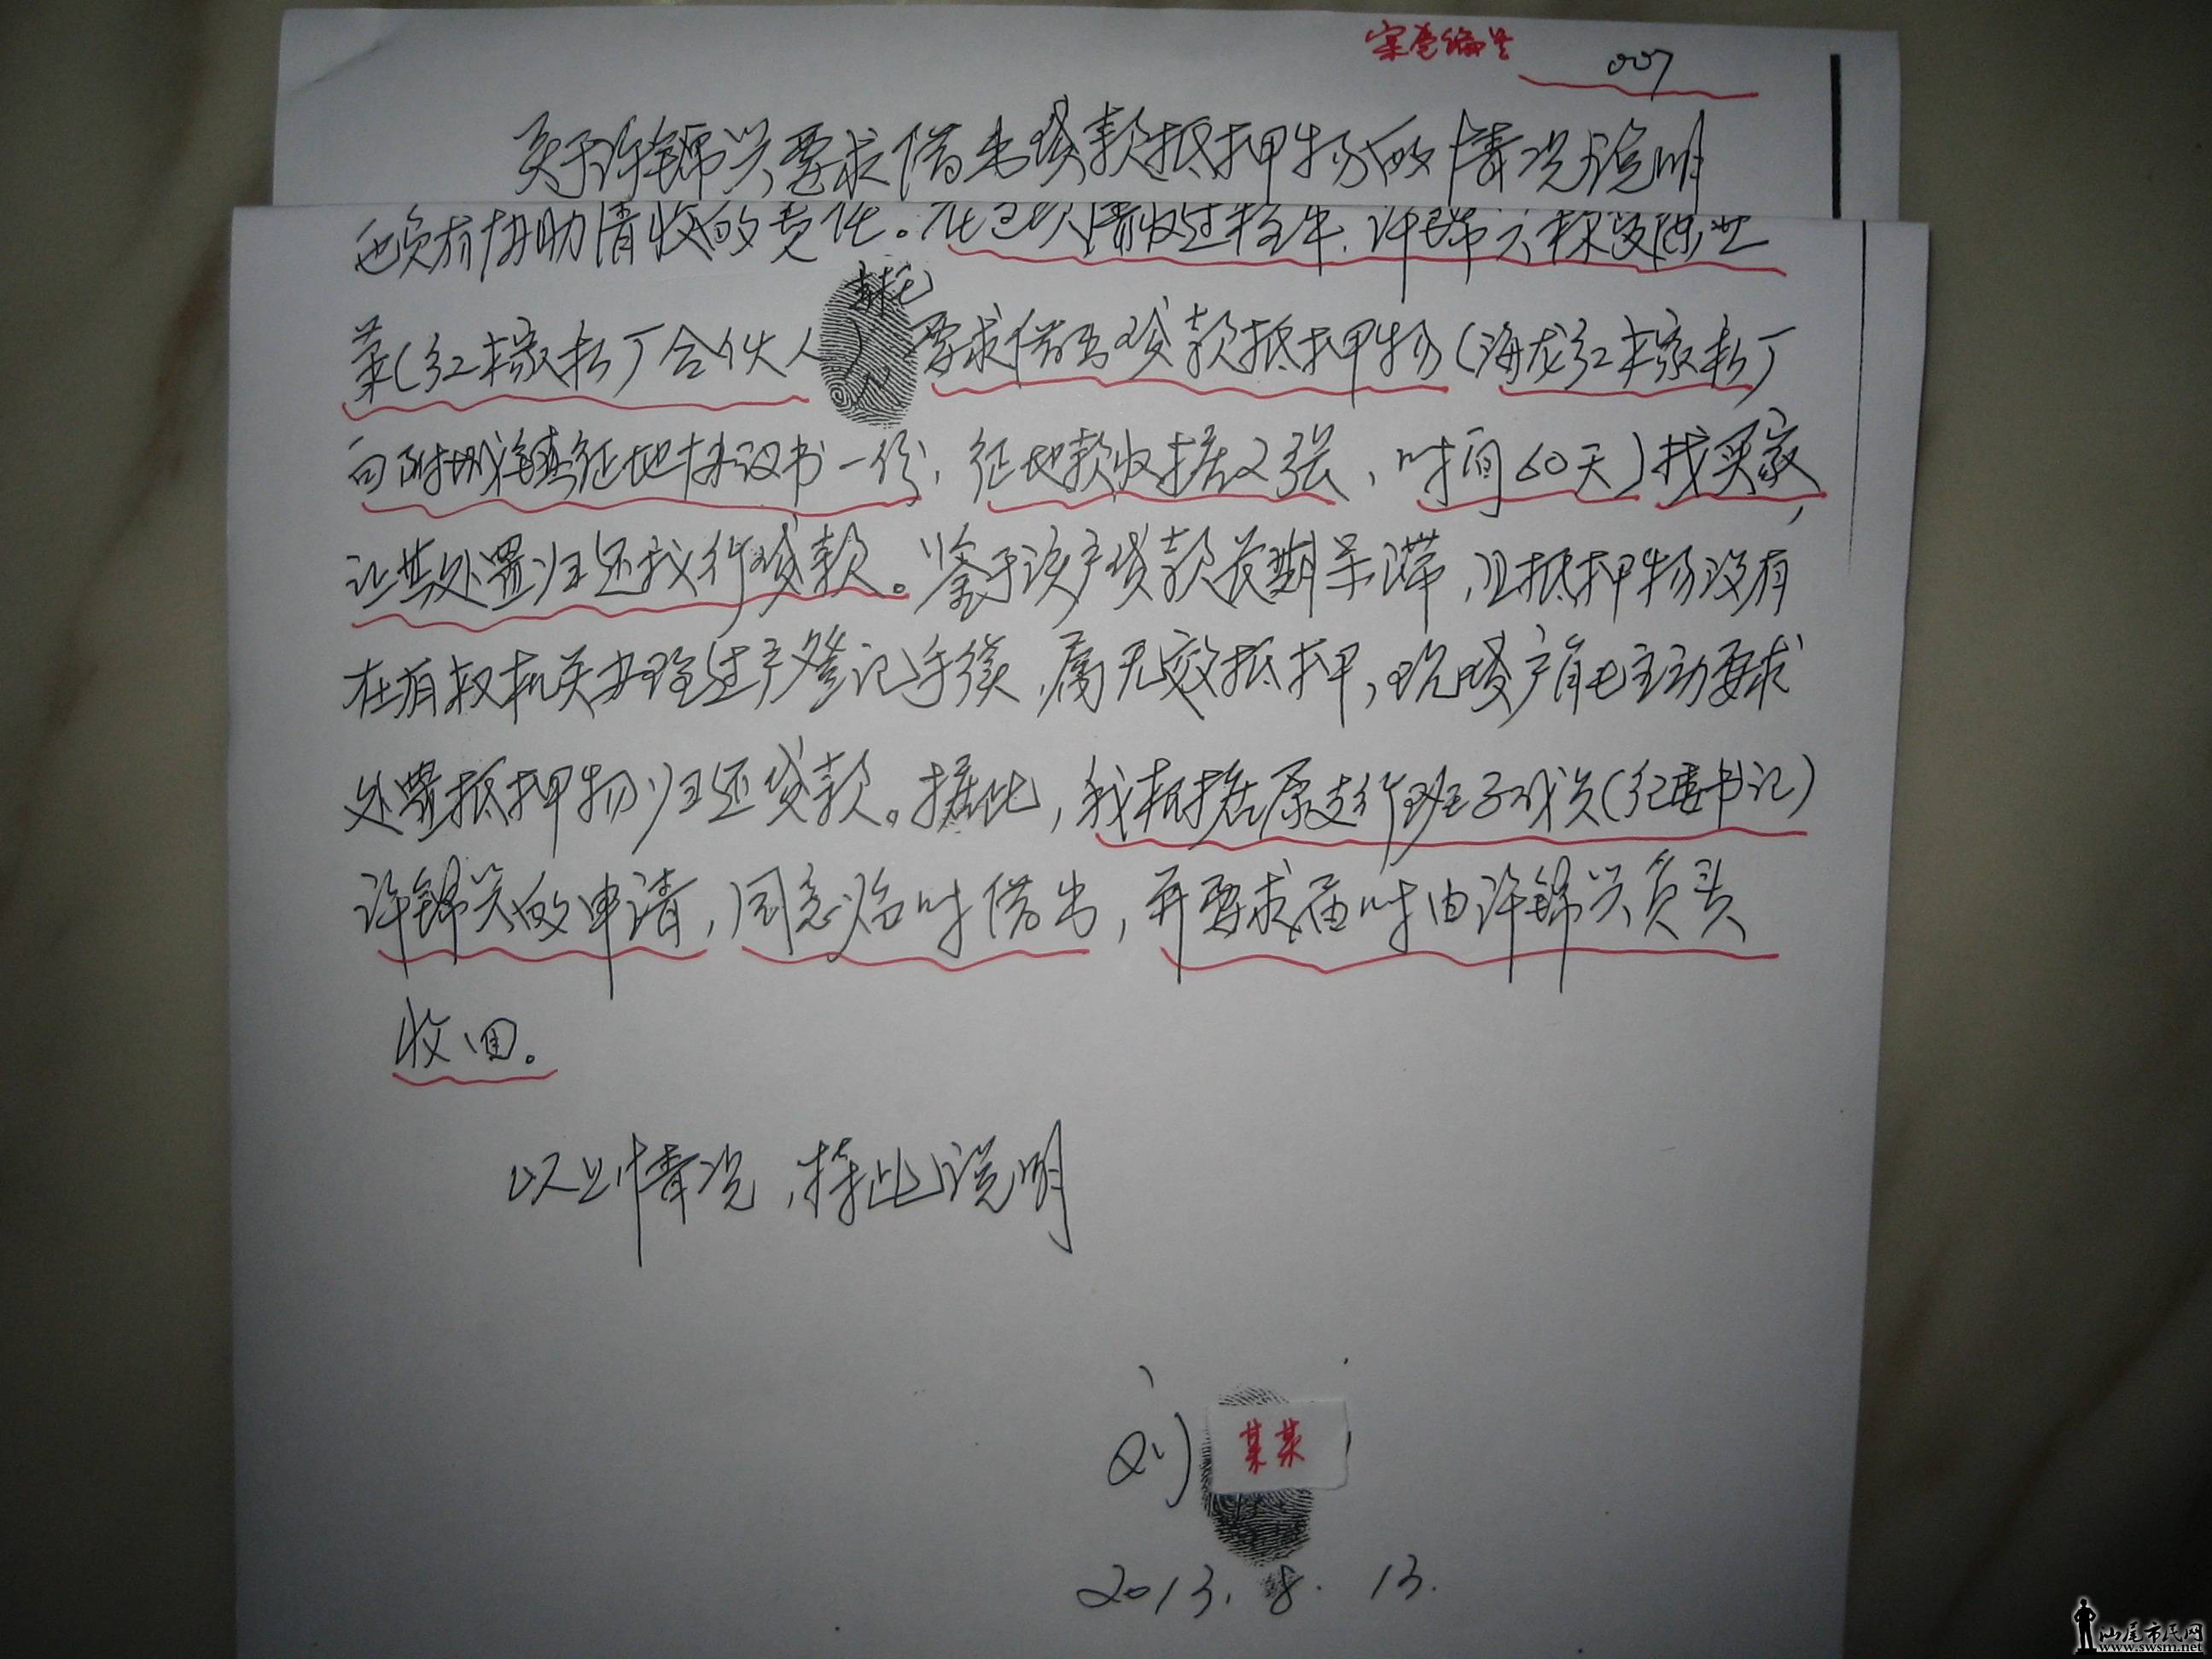 案卷编号 007
关于许锦兴要求借出贷款抵押物的情况说明
也负有协助清收的责任。在已以清收过程中.许锦兴
菜(红橡板厂合伙人)
委托
要求借出贷款抵押物(海龙红橡板厂
向附城镇征地协议书一份,征地款收据2张,时间60天)找买家,
让其处置归还我行贷款。鉴于该户贷款长期呆滞,且抵押物没有
在有权机关办理过户登记手续,属无效抵押,现贷户自己主动要求
处置抵押物归还贷款。据此,我根据原支行班子成员(纪委书记)
许锦兴的申请,同意临时借出,并要求届时由许锦兴负责
收回。
以上情况,特此说明
某某
2013.8.13.
汕尾市民网
www.swsm.net